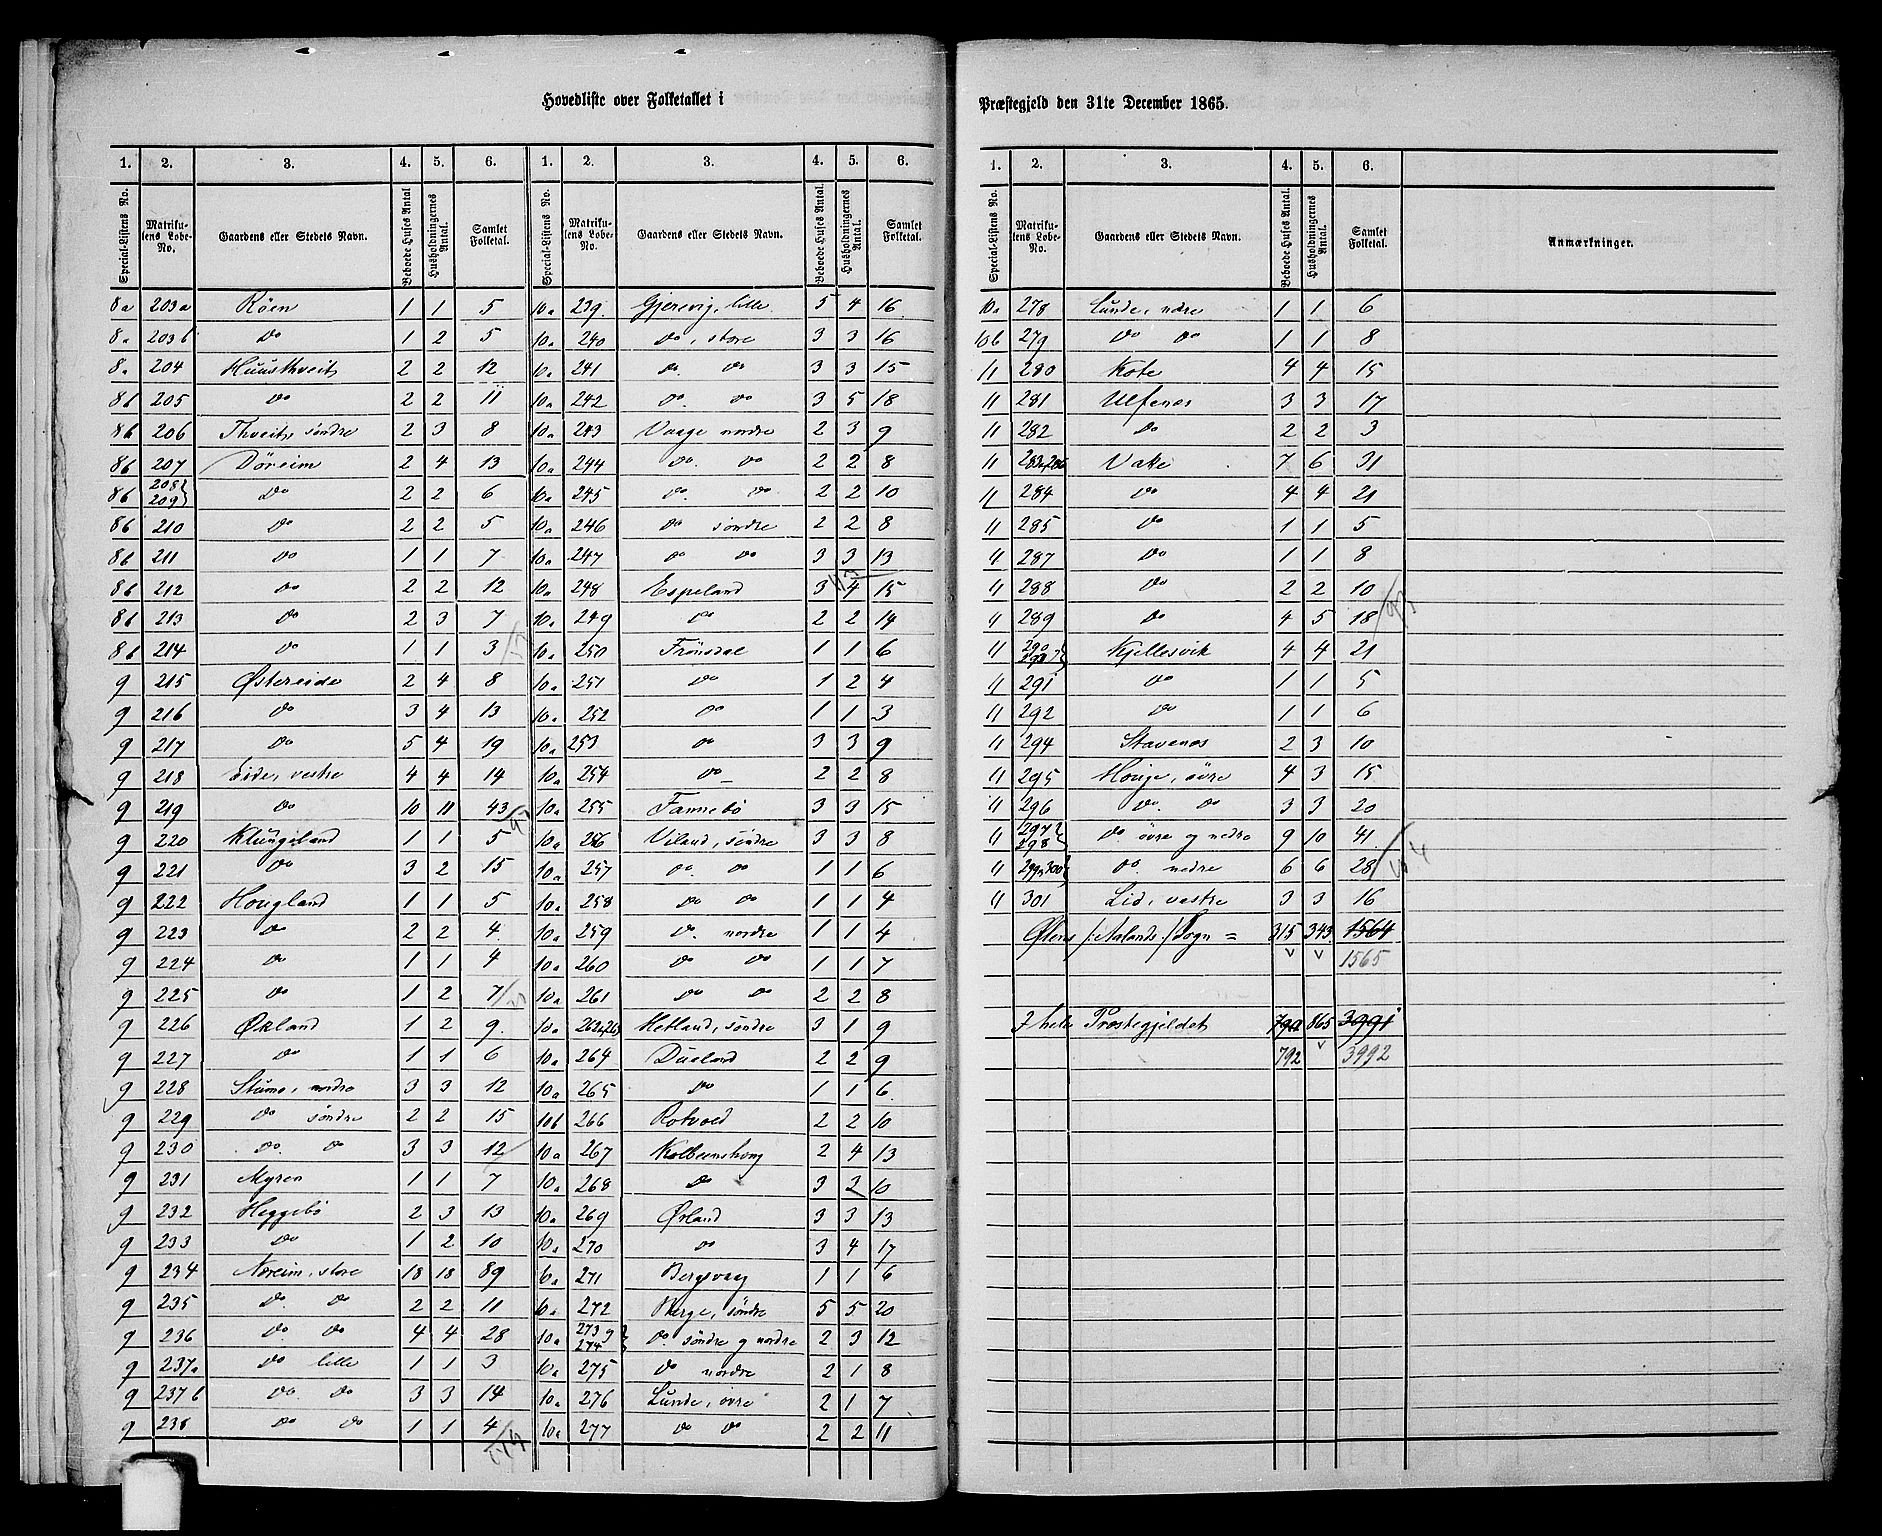 Hovedliste over Folketallet i Præstegjeld den 31te December 1865.
1. 2. 3. 4. 5. 6. 1. 2. 3. 4. 5. 6.
Special-Listens No. Matrikulens Løbe-No. Gaardens eller Stedets Navn. Beboede Huses Antal Husholdningernes Antal. Samlet Folketal. Special-Listens No. Matrikulens Løbe-No. Gaardens eller Stedets Navn. Beboede Huses Antal. Husholdningernes Antal. Samlet Folketal.
8a 203a Röen 1 1 5
8a 203b do 1 2 5
8a 204 Huusthveit 2 2 12
8b 205 do 2 2 11
8b 206 Thveit, söndre 2 3 8
8b 207 Döreim 2 4 13
8b 208 209 do 2 2 6
8b 210 do 2 2 5
8b 211 do 1 1 7
8b 212 do 2 2 12
8b 213 do 2 3 7
8b 214 do 1 1 3
9 215 Østereide 2 4 8
9 216 do 3 4 13
9 217 do 5 4 19
9 218 Eide, vestre 4 4 14
9 219 do 10 11 43
9 220 Klungeland 1 1 5
9 221 do 3 2 15
9 222 Hougland 1 1 5
9 223 do 2 2 4
9 224 do 1 1 4
9 225 do 1 2 7
9 226 Økland 1 2 9
9 227 do 1 1 6
9 228 Stumo, nordre 3 3 12
9 229 do söndre 2 2 15
9 230 do. do 3 3 12
9 231 Myren 1 1 7
9 232 Heggebö 2 3 13
9 233 do 1 2 10
9 234 Næreim, store 18 18 89
9 235 do. do 2 2 11
9 236 do. do 4 4 28
9 237a do lille 1 1 3
9 237b do. do 3 3 14
9 238 do do 1 1 4
10a 239 Gjerevig, lille 5 4 16
10a 240 do, store 3 3 16
10a 241 do. do 3 3 15
10a 242 do. do 3 5 18
10a 243 Vaage nordre 2 3 9
10a 244 do. do 2 2 8
10a 245 do. do 2 2 10
10a 246 do söndre 2 2 8
10a 247 do do 3 3 13
10a 248 Espeland 3 4 15
10a 249 do 2 2 14
10a 250 Frönsdal 1 1 6
10a 251 do 1 2 4
10a 252 do 1 1 3
10a 253 do 3 3 9
10a 254 do 2 2 8
10a 255 Fannebö 3 3 15
10a 256 Viland, söndre 3 3 8
10a 257 do. do 1 1 6
10a 258 do do 1 1 4
10a 259 do. nordre 1 1 4
10a 260 do do 1 1 7
10a 261 do do 2 2 8
10a 262, 263 Hetland, söndre 3 1 9
10a 264 Dueland 2 2 9
10a 265 do 1 1 6
10b 266 Rotvold 2 2 10
10a 267 Kolbeenshoug 2 4 13
10a 268 do 3 2 10
10a 269 Ørland 3 3 13
10a 270 do 3 4 17
10a 271 Bergsvaag 1 1 6
10a 272 Berge, söndre 5 5 20
10a 273 274 do. söndre og nordre 2 3 12
10a 275 do nordre 2 1 8
10a 276 Lunde, övre 2 1 7
10a 277 do do 2 2 11
1. 2. 3. 4. 5. 6.
Special-Listens No. Matrikulens Løbe-No. Gaardens eller Stedets Navn. Beboede Huses Antal. Husholdningernes Antal. Samlet Folketal. Anmærkninger.
10a 278 Lunde, nedre 1 1 6
10b 279 do do 1 1 8
11 280 Kote 4 4 15
11 281 Ulfenes 3 3 17
11 282 do 2 2 3
11 283, 286 Vake 7 6 31
11 284 do 4 4 21
11 285 do 1 1 5
11 287 do 1 1 8
11 288 do 2 2 10
11 289 do 4 5 18
11 290 Kjellesvik 4 4 21
11 291 do 1 1 5
11 292 do 1 1 6
11 294 Stavenes 2 3 10
11 295 Houge, övre 4 3 15
11 296 do. do 3 3 20
11 297 298 do övre og nedre 9 10 41
11 299, 300 do. nedre 6 6 28
11 301 Lid, vestre 3 3 16
Ølens /:Aalands:/ Sogn = 315 343 1564
1565
I hele Præstegjeldet 790 865 3991
792 3992